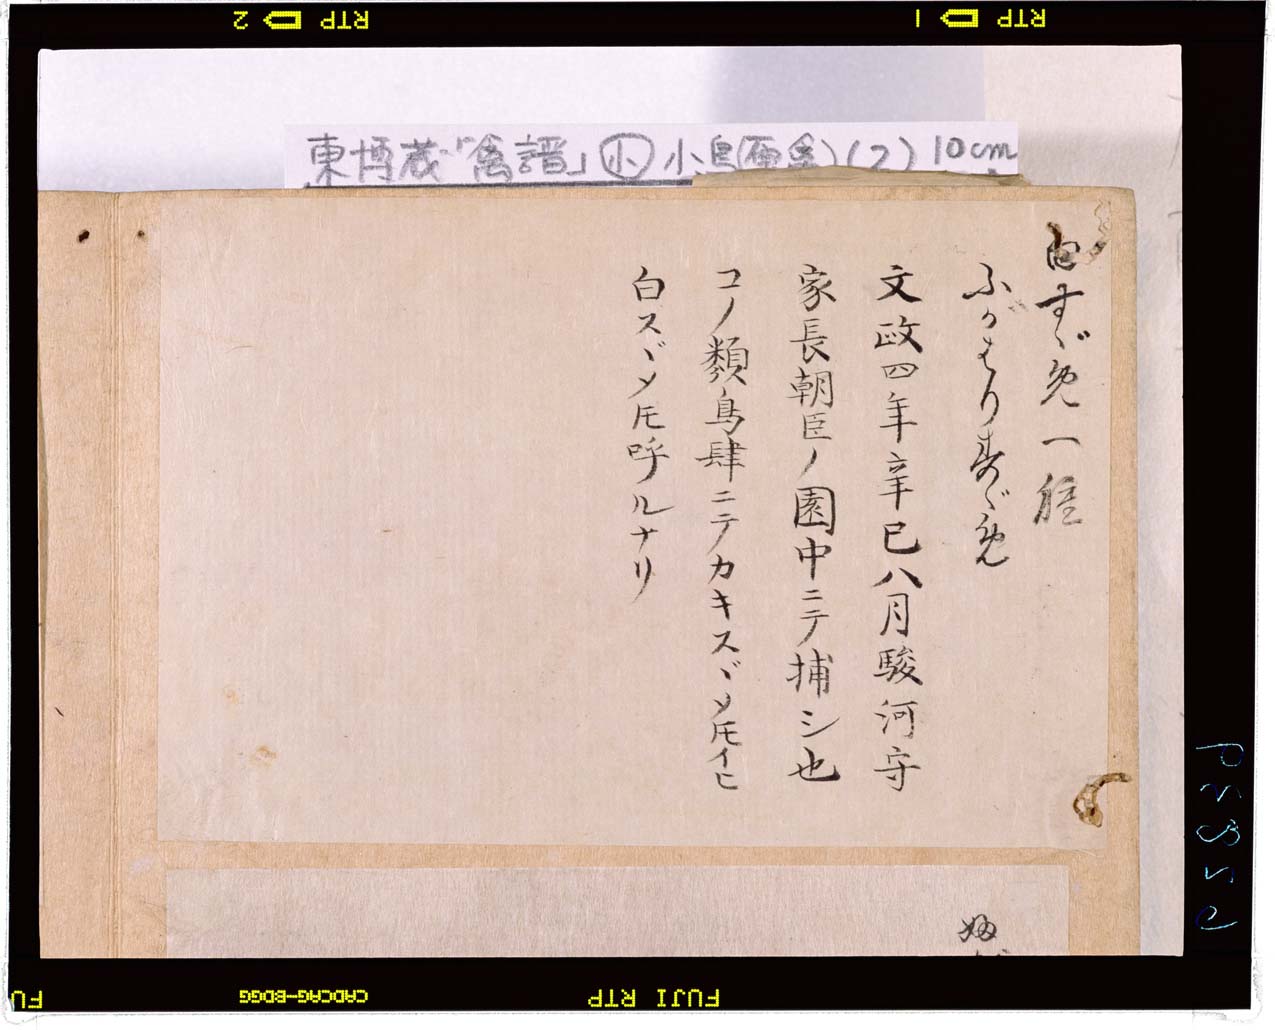 RTP 2
RTP 1
東博蔵「禽譜」小 小鳥(雨禽)(2) 10cm
白すゞめ一種
ふがはりすゞめ
文政四年辛巳八月駿河守
家長朝臣ノ園中ニテ捕シ也
コノ類鳥肆ニテカキスヾメ𪜈イヒ
白スヾメ𪜈呼ルナリ
FUJI RTP
CADCAG-BDGG
FU